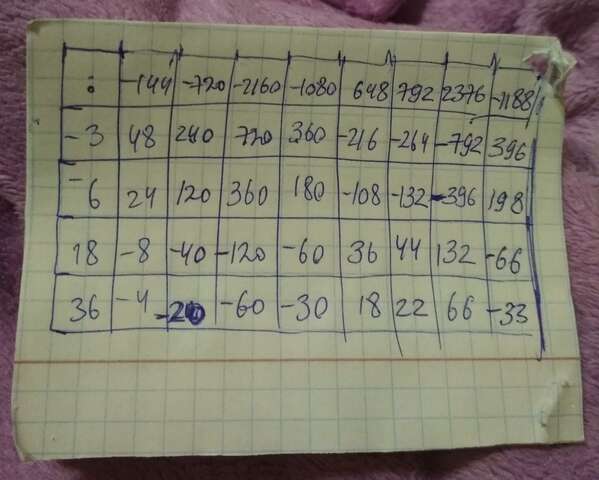 : -144 -720 -2160 -1080 648 792 2376 -1188
-3 48 240 720 360 -216 -264 -792 396
-6 24 120 360 180 -108 -132 -396 198
18 -8 -40 -120 -60 36 44 132 -66
36 -4 -20 -60 -30 18 22 66 -33